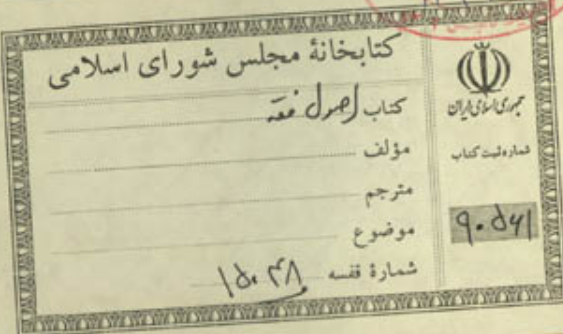 کتابخانهٔ مجلس شورای اسلامی
کتاب اصول فقه
مؤلف
مترجم
موضوع
شمارهٔ قفسه ۱۵۰۴۸
جمهوری اسلامی ایران
شماره ثبت کتاب
۹۰۵۶۱